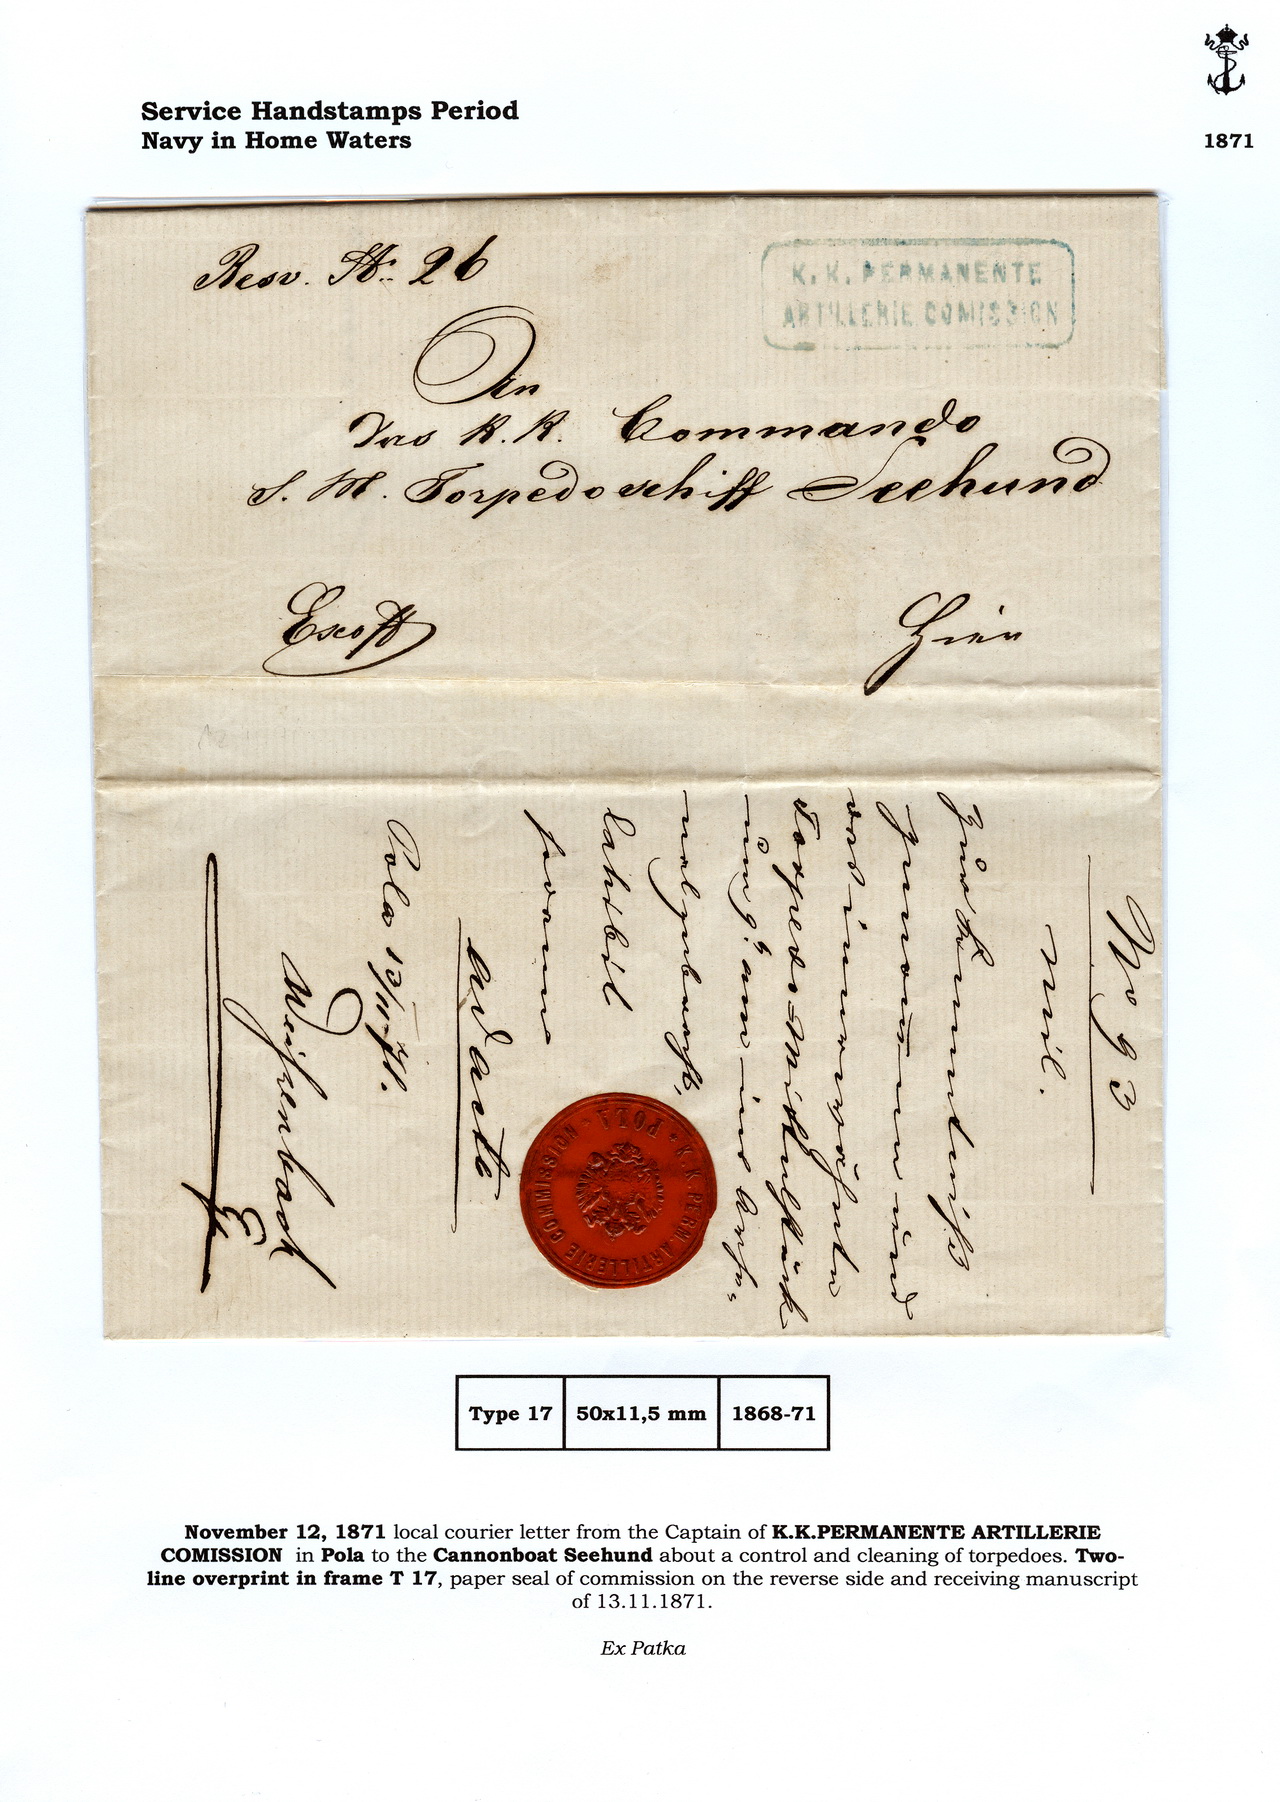 Service Handstamps Period
Navy in Home Waters
1871
Resv. Nr. 26
K. K. PERMANENTE
ARTILLERIE COMISSION
An
Das K. K. Commando
S. M. Torpedoschiff Seehund
Exoff
Hier
No 93
mil.
Zur Kenntniß
genommen und
das in erwähnte
Torpedo
ad acta
Pola 13/11 71.
Weißenbach
K. K. PERM. ARTILLERIE COMMISSION * POLA *
Type 17 50x11,5 mm 1868-71
November 12, 1871 local courier letter from the Captain of K.K.PERMANENTE ARTILLERIE
COMISSION in Pola to the Cannonboat Seehund about a control and cleaning of torpedoes. Two-
line overprint in frame T 17, paper seal of commission on the reverse side and receiving manuscript
of 13.11.1871.
Ex Patka